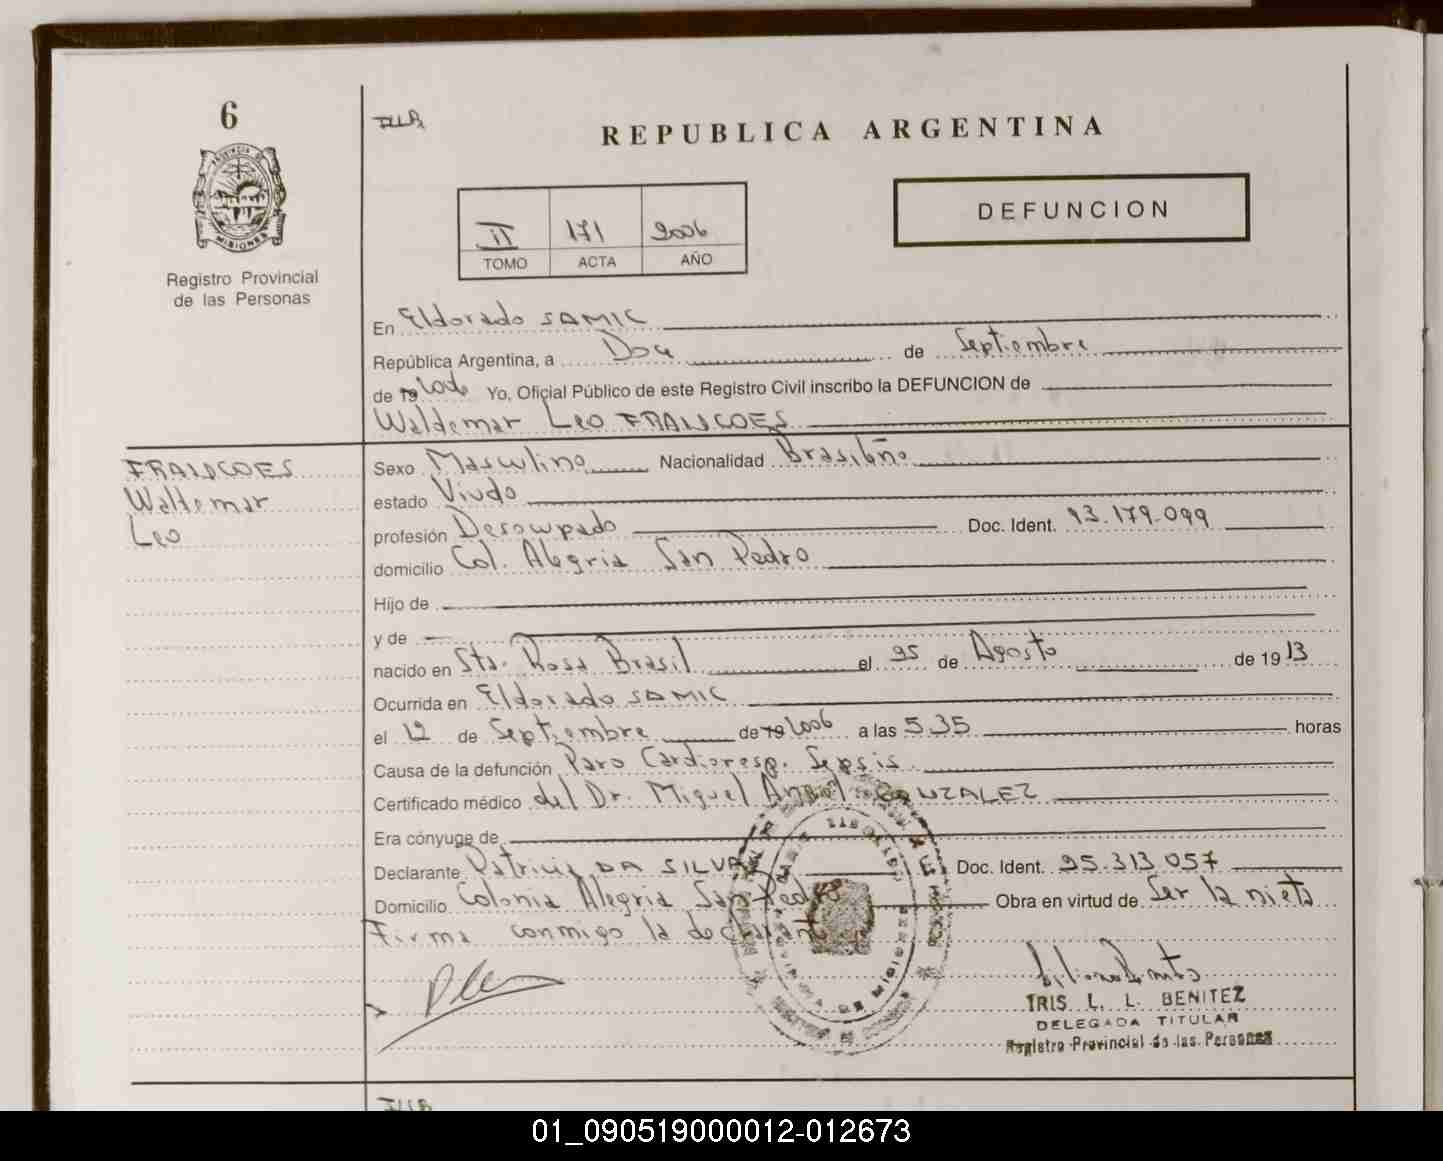 6
PROVINCIA DE
MISIONES
Registro Provincial
de las Personas
REPUBLICA ARGENTINA
DEFUNCION
II 171 2006
TOMO ACTA AÑO
En Eldorado SAMIC
República Argentina, a Doce de Septiembre
de 19 2006 Yo, Oficial Público de este Registro Civil inscribo la DEFUNCION de
Waldemar Leo FRANCOES
FRANCOES
Waldemar
Leo
Sexo Masculino Nacionalidad Brasileño
estado Viudo
profesión Desocupado Doc. Ident. 93.179.099
domicilio Col. Alegria San Pedro
Hijo de
y de
nacido en Sta. Rosa Brasil el 25 de Agosto de 1913
Ocurrida en Eldorado SAMIC
el 12 de Septiembre de 19 2006 a las 5.35 horas
Causa de la defunción Paro Cardioresp. Sepsis
Certificado médico del Dr. Miguel Angel GONZALEZ
Era cónyuge de
Declarante Patricia DA SILVA Doc. Ident. 95.313.057
Domicilio Colonia Alegria San Pedro Obra en virtud de Ser la nieta
Firma conmigo la declarante
IRIS L. L. BENITEZ
DELEGADA TITULAR
Registro Provincial de las Personas
01_090519000012-012673